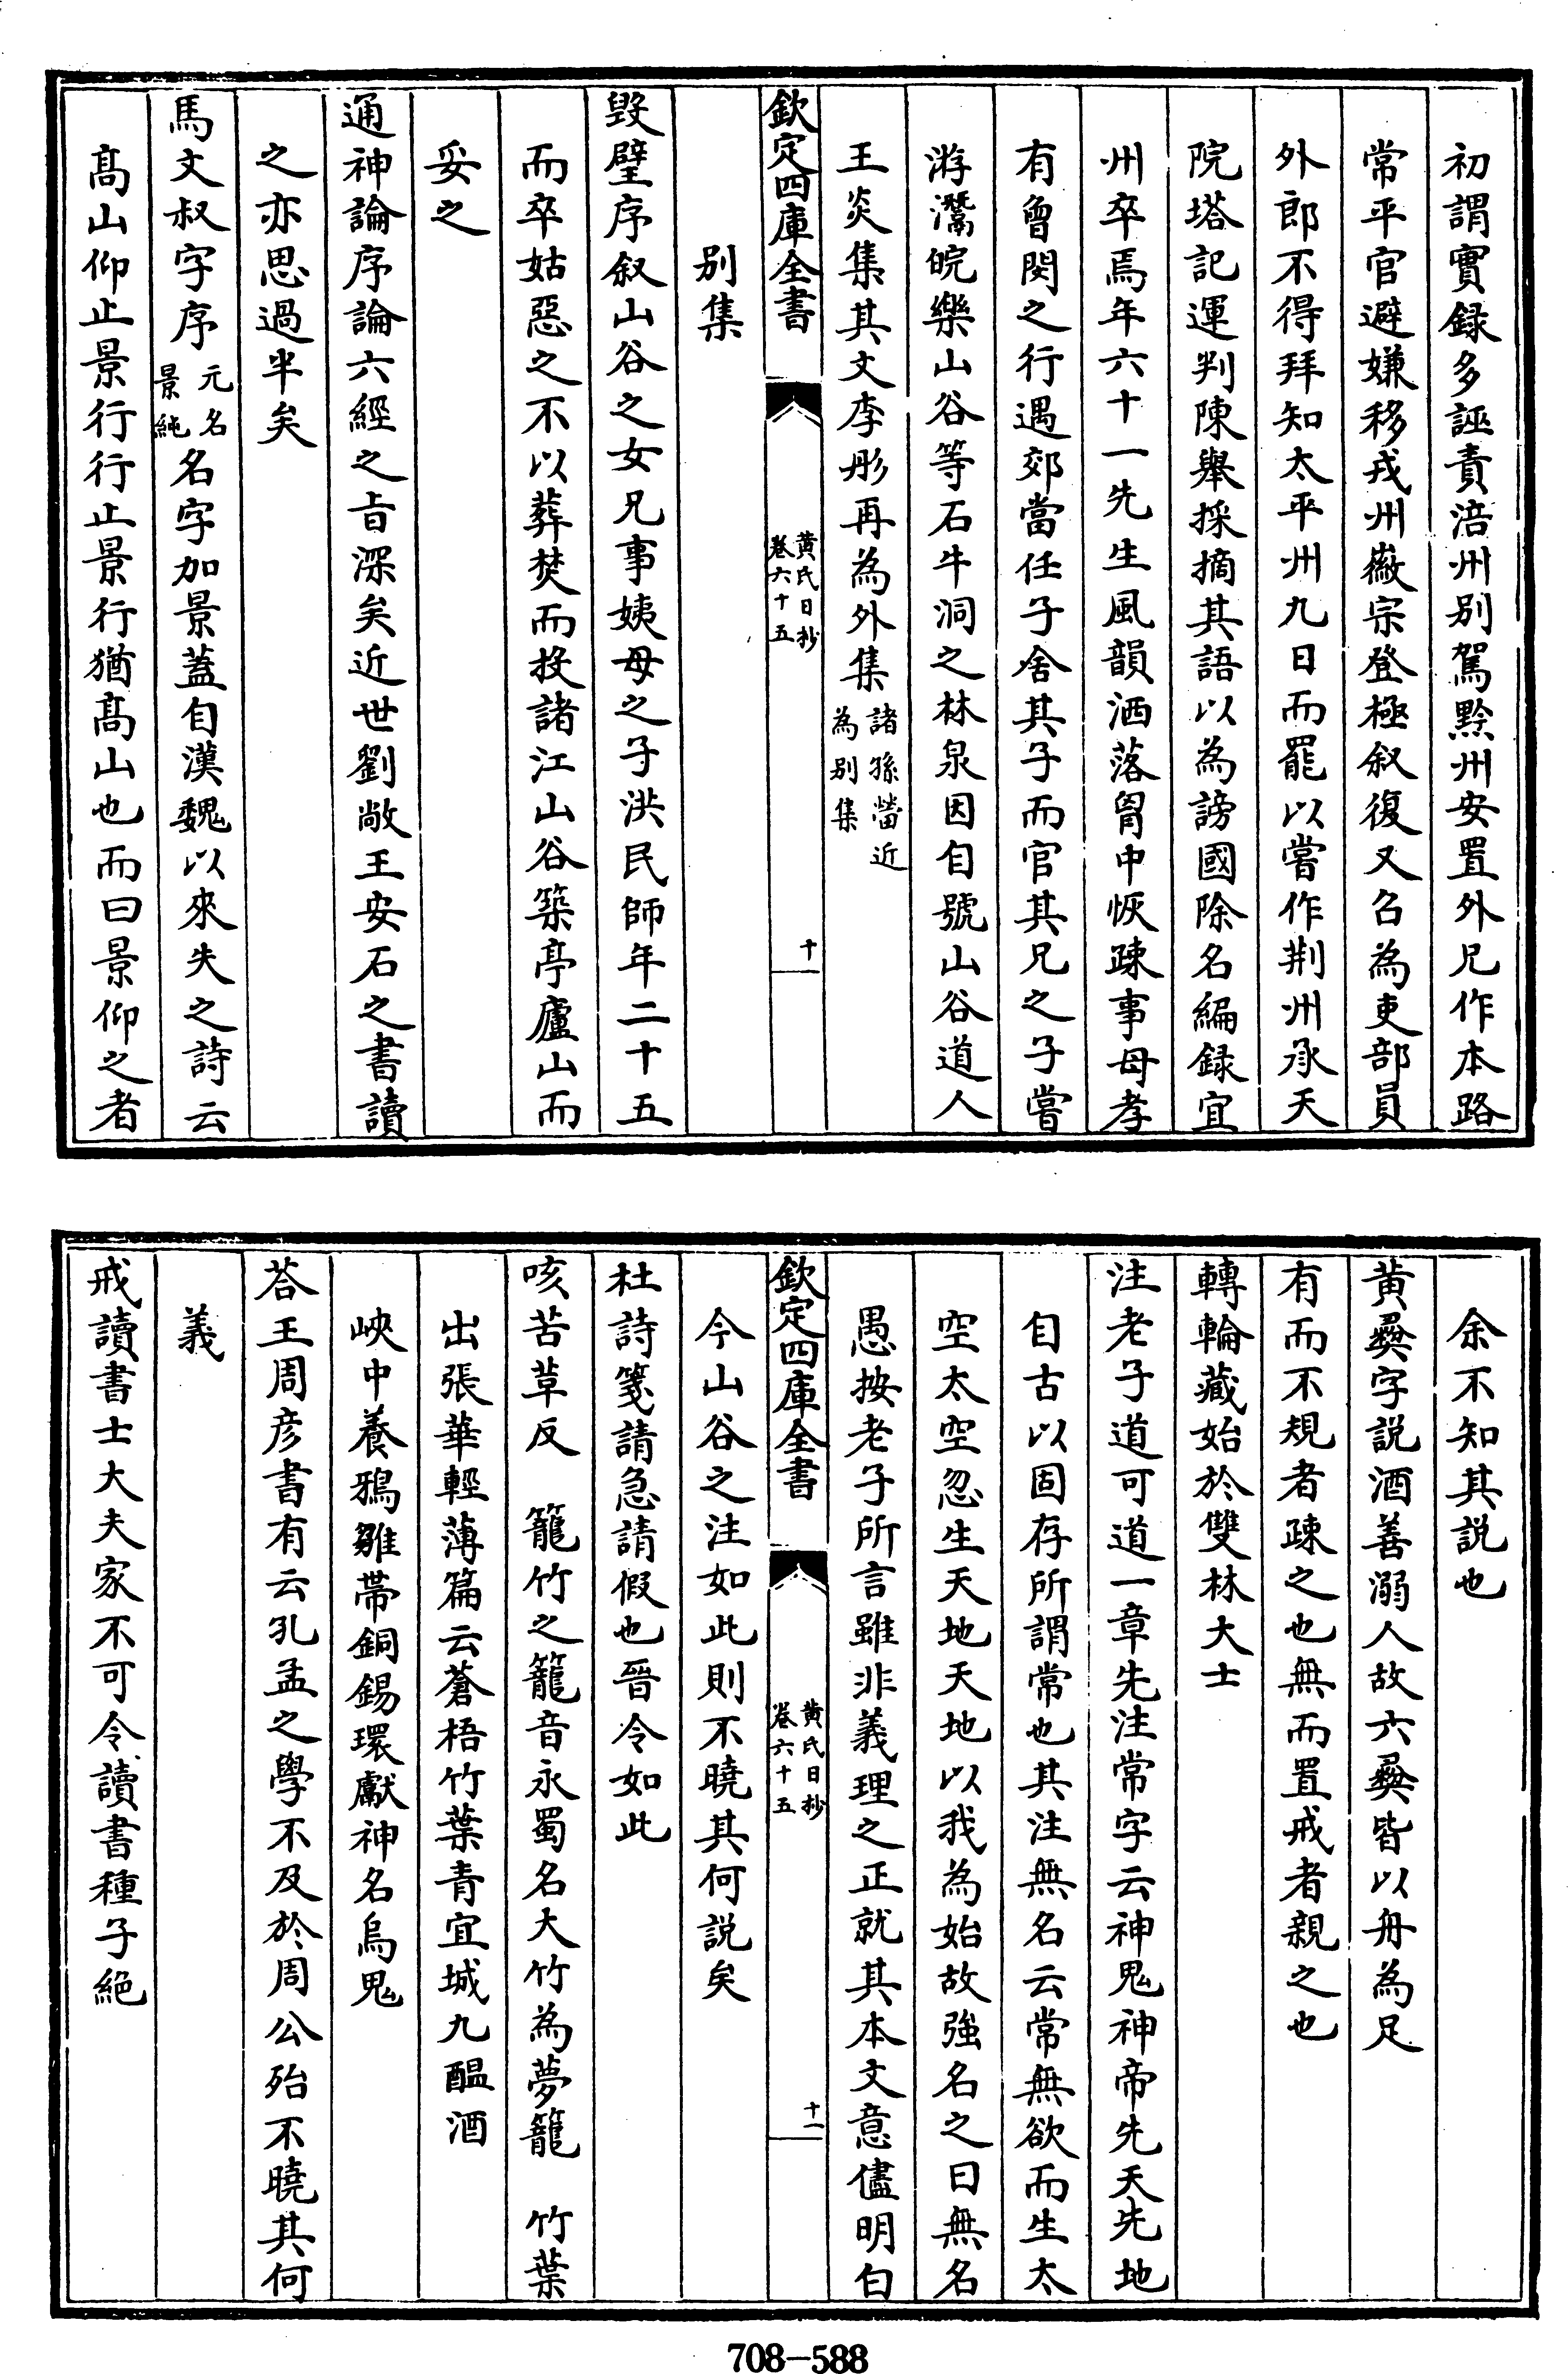 初謂實録多誣責涪州别駕黔州安置外兄作本路
常平官避嫌移戎州徽宗登極叙復又召為吏部員
外郎不得拜知太平州九日而罷以嘗作荆州承天
院塔記運判陳舉採摘其語以為謗國除名編録宜
州卒焉年六十一先生風韻洒落胷中恢疎事母孝
有曾閔之行遇郊當任子舍其子而官其兄之子嘗
游灊皖樂山谷等石牛洞之林泉因自號山谷道人
王炎集其文李彤再為外集諸孫㽦近為别集
欽定四庫全書
黄氏日抄
卷六十五
十
别集
毁璧序叙山谷之女兄事姨母之子洪民師年二十五
而卒姑惡之不以葬焚而投諸江山谷築亭廬山而
妥之
通神論序論六經之旨深矣近世劉敞王安石之書讀
之亦思過半矣
馬文叔字序元名景純名字加景蓋自漢魏以來失之詩云
髙山仰止景行行止景行猶髙山也而曰景仰之者
余不知其説也
黄彛字説酒善溺人故六彛皆以舟為足
有而不規者疎之也無而置戒者親之也
轉輪藏始於雙林大士
注老子道可道一章先注常字云神鬼神帝先天先地
自古以固存所謂常也其注無名云常無欲而生太
空太空忽生天地天地以我為始故強名之曰無名
愚按老子所言雖非義理之正就其本文意儘明白
欽定四庫全書
黄氏日抄
卷六十五
十一
今山谷之注如此則不曉其何説矣
杜詩箋請急請假也晉令如此
咳苦草反　籠竹之籠音永蜀名大竹為夢籠　竹葉
出張華輕薄篇云蒼梧竹葉青宜城九醖酒
峽中養鴉雛帶銅錫環獻神名烏鬼
荅王周彦書有云孔孟之學不及於周公殆不曉其何
義
戒讀書士大夫家不可令讀書種子絶
708-588